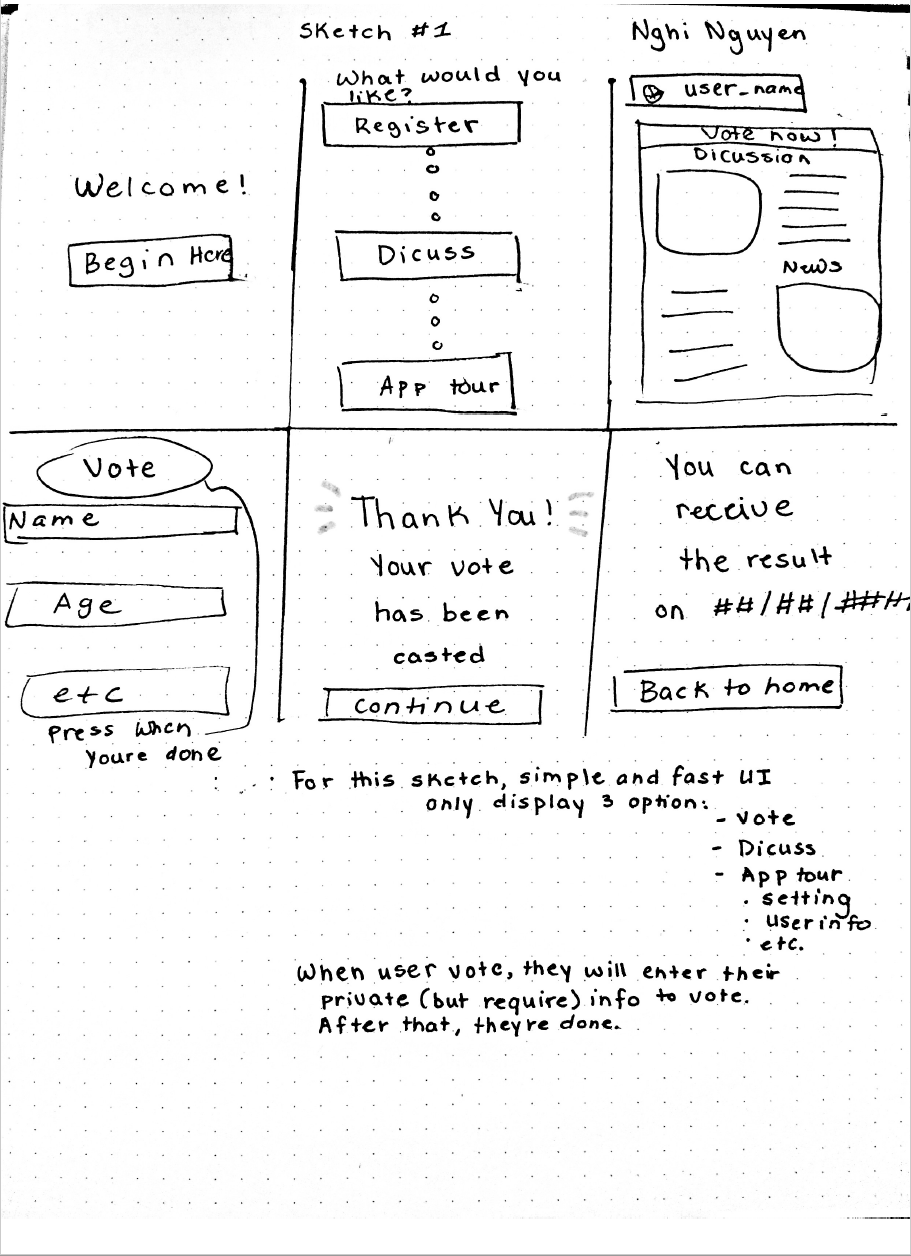 Sketch #1
Nghi Nguyen
Welcome!
Begin Here
What would you
like?
Register
Dicuss
App tour
user_name
Vote now!
Dicussion
News
Vote
Name
Age
etc
Press when
youre done
Thank You!
Your vote
has been
casted
Continue
You can
receive
the result
on ##/##/####
Back to home
For this sketch, simple and fast UI
only display 3 option:
- Vote
- Dicuss
- App tour
. setting
. user info
. etc.
When user vote, they will enter their
private (but require) info to vote.
After that, theyre done.